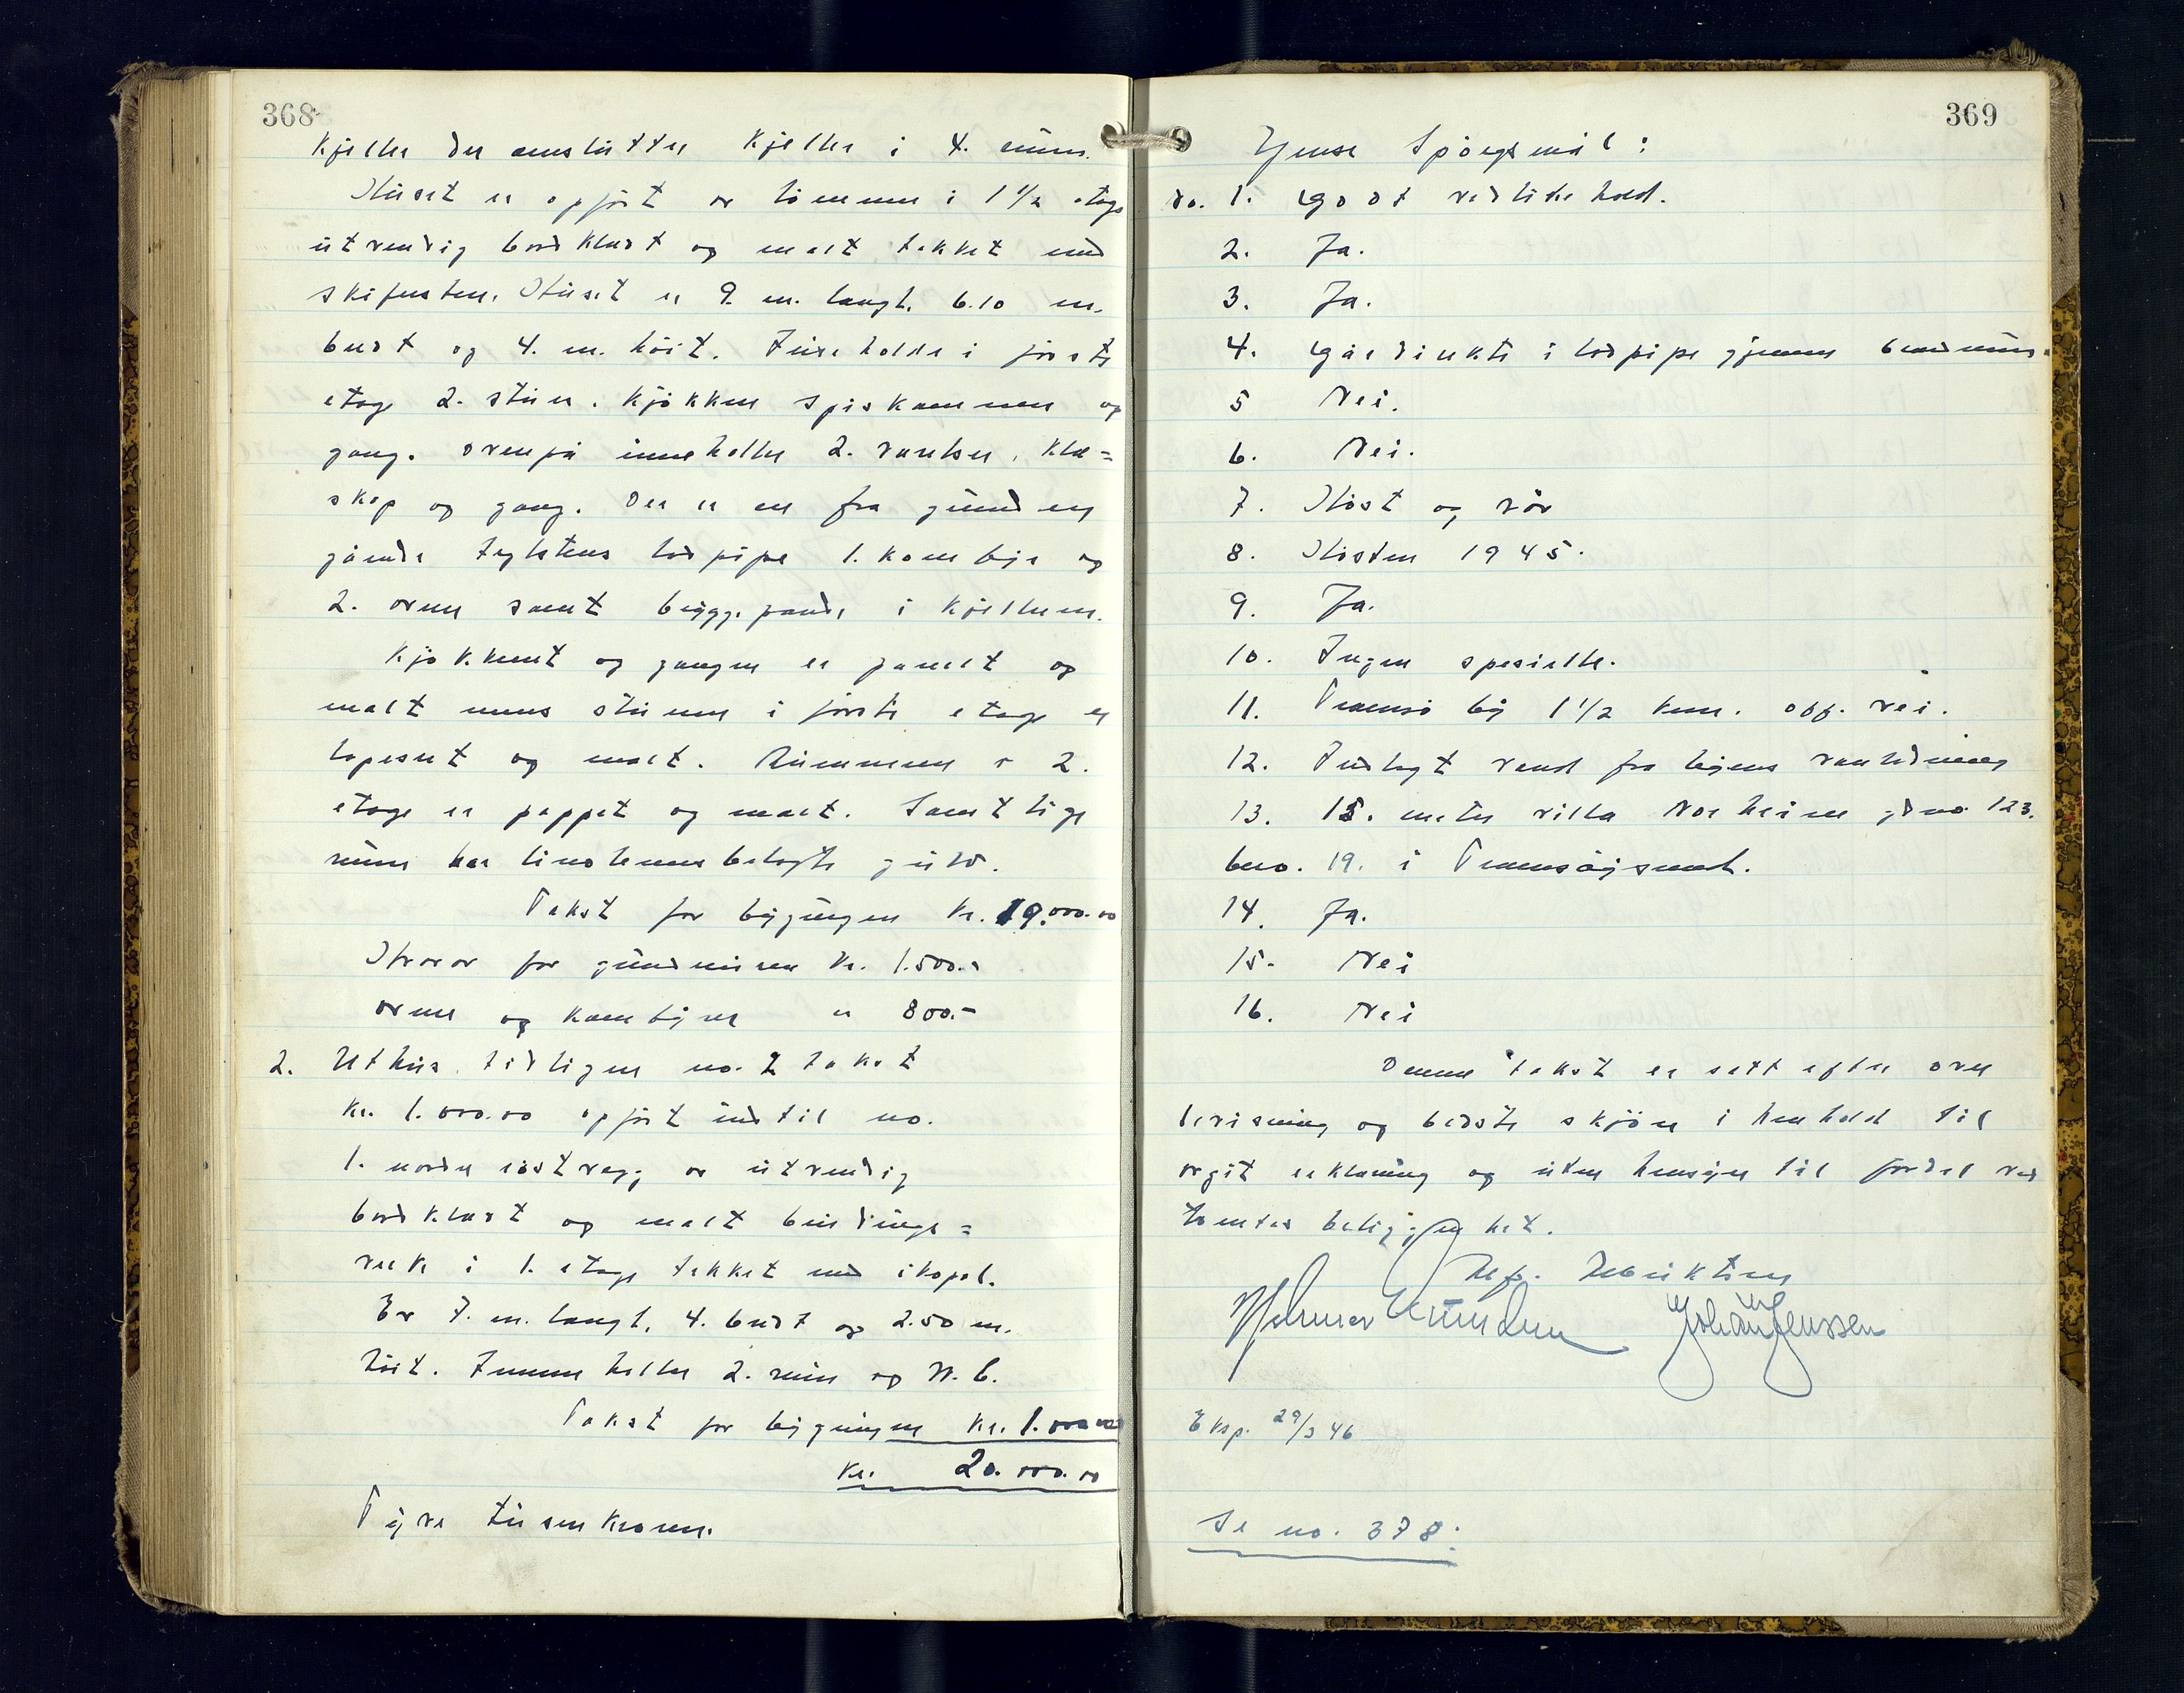 368
Kjeller der omslutter Kjeller i 4. rum.
Huset er opfört av tömmer i 1 1/2 etage
utvendig bordklædt og malt tekket med
skifersten. Huset er 9. m. langt. 6.10 m.
bredt og 4. m. höit. Inneholder i förste
etage 2. stuer. Kjökken spiskammer og
gang. ovenpå inneholder 2. værelser. Klæ=
skap og gang. Der er en fra grunden
gående teglstens lodpipe 1. komfyr og
2. ovner samt bryggepande i Kjelleren.
Kjökkenet og gangen er panelt og
malt mens stuerne i förste etage er
tapesert og malt. Rummene i 2.
etage er pappet og malt. Samtlige
rum har linoleumsbelagte gulv.
Takst for bygningen Kr. 19.000.00
Hvorav for grundmuren Kr. 1.500.-
ovner og komfyrer " 800.-
2. Uthus. tidligere no. 2 takst
Kr. 1.000.00 opfört indtil no.
1. nordre östvegg av utvendig
bordklædt og malt bindings=
verk i 1. etage tekket med ikopal.
Er 7. m. langt. 4. bredt og 2.50 m.
höit. Inneholder 2. rum og W.C.
Takst for bygningen Kr. 1.000.00
Kr. 20.000.00
Tyve tusen kroner.
369
Jense Spörgsmål:
do. 1. Godt vedlikehold.
2. Ja.
3. Ja.
4. Går direkte i lodpipe gjennem brandmur.
5 Nei.
6. Nei.
7. Höst og vår
8. Hösten 1945.
9. Ja.
10. Ingen spesielle.
11. Tromsö by 1 1/2 km. off. vei.
12. Indlagt vand fra byens vandledning
13. 15. meter villa Norheim gdno 123.
bno. 19. i Tromsöysund.
14. Ja.
15. Nei
16. Nei
Denne takst er sett efter over
bevisning og bedste skjön i henhold til
avgit erklæring og uten hensyn til fordel ved
tomtes beliggenhet.
Alf. Henriktsen
Hjelmar Knudsen Johan Jenssen
Eksp. 29/3 46
Se no. 378: